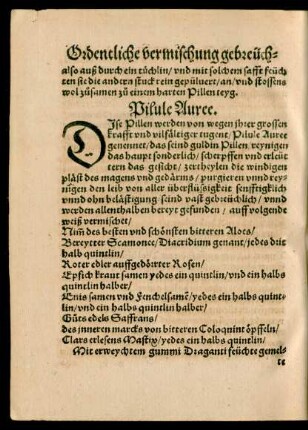 Ordentliche vermischung gebreüch⸗
also auß durch ein tüchlin/ vnd mit solchem safft feüch
ten sie die andern stuck rein gepüluert/ an/ vnd stossens
wol züsamen zü einem harten Pillen teyg.
Pilule Auree.
Ise Pillen werden von wegen jhrer grossen
krafft vnd vilfältiger tugent/ Pilule Auree
genennet/ das seind guldin Pillen/ reynigen
das haupt sonderlich/ scherpffen vnd erleüt
tern das gesicht/ zertheylen die windigen
pläst des magens vnd gedärms/ purgieren vnnd rey⸗
nigen den leib von aller überflüssigkeit senfftigklich
vnnd ohn belästigung seind vast gebreüchlich/ vnnd
werden allenthalben bereyt gefunden/ auff volgende
weiß vermischet/
Nim des besten vnd schönsten bitteren Aloes/
Bereytter Scamonee/ Diacridium genant/ jedes dit
halb quintlin/
Roter edler auffgedörter Rosen/
Epfich kraut samen yedes ein quintlin/ vnd ein halbs
quintlin halber/
Enis samen vnd Fenchelsamē/ yedes ein halbs quint⸗
lin/ vnd ein halbs quintlin halber/
Güts edels Saffrans/
des inneren marcks von bitteren Coloquint öpffeln/
Clars erlesens Mastix/ yedes ein halbs quintlin/
Mit erweychtem gummi Draganti feüchte gemel⸗
te